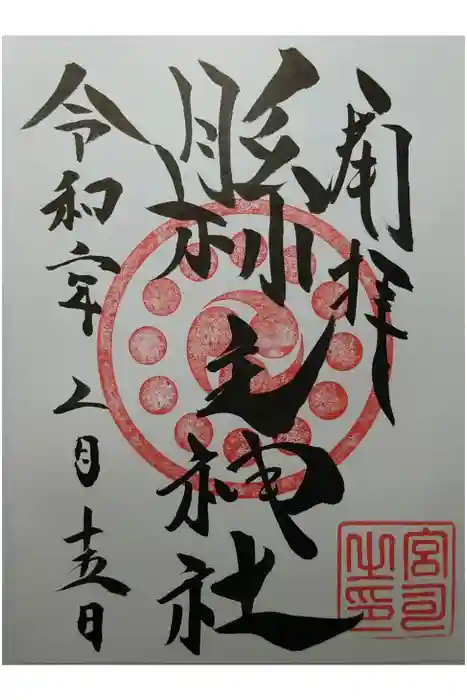 奉拝
縣主神社
令和六年八月十五日
宮司
之印